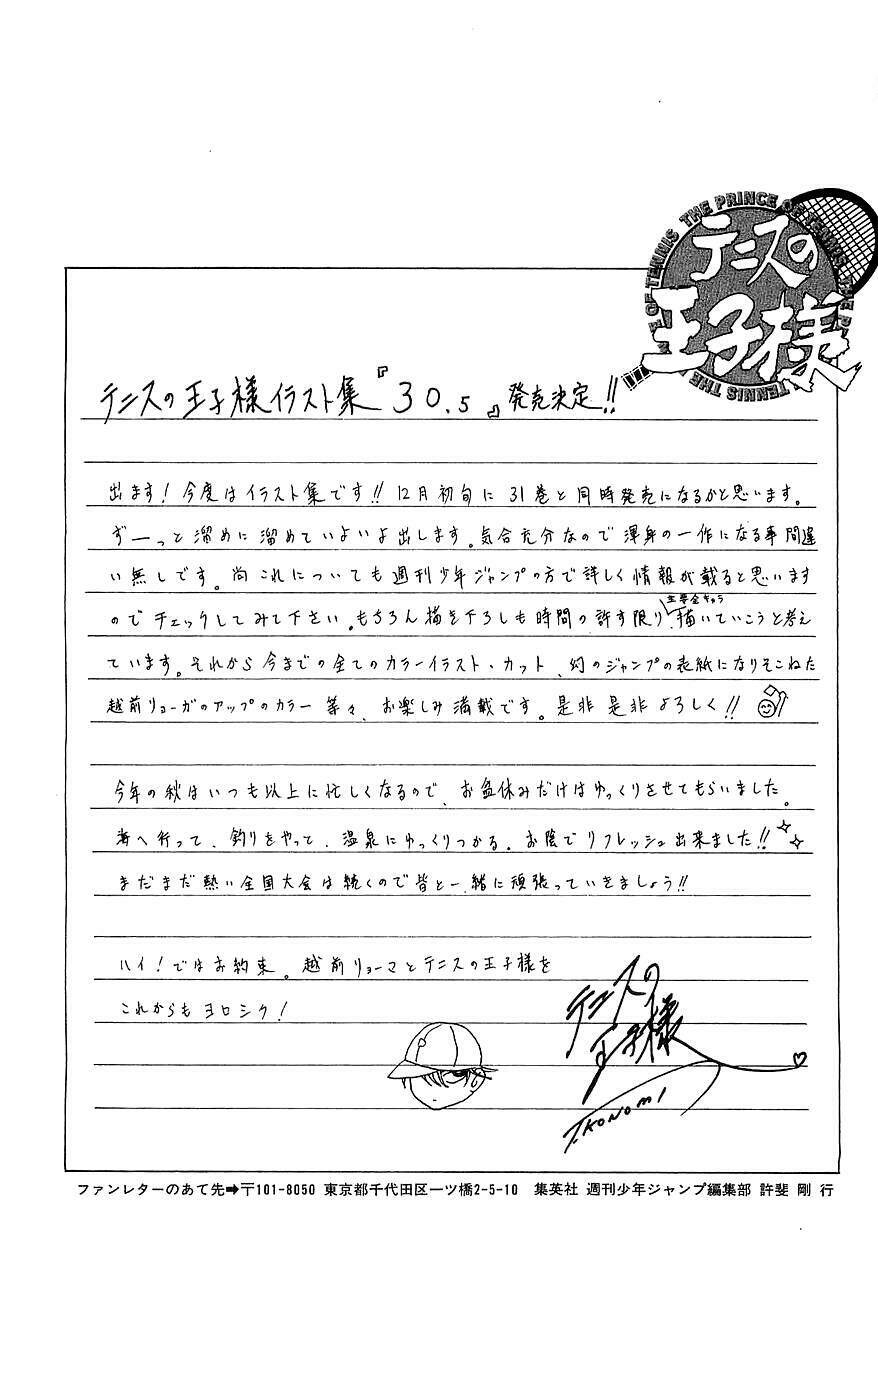 THE PRINCE OF TENNIS THE PRINCE OF TENNIS THE
テニスの
王子様
テニスの王子様イラスト集『30.5』発売決定!!
出ます!今度はイラスト集です!!12月初旬に31巻と同時発売になるかと思います。
ずーっと溜めに溜めていよいよ出します。気合充分なので渾身の一作になる事間違
い無しです。尚これについても週刊少年ジャンプの方で詳しく情報が載ると思います
主要全キャラ
のでチェックしてみて下さい。もちろん描き下ろしも時間の許す限り、描いていこうと考え
ています。それから今までの全てのカラーイラスト・カット、幻のジャンプの表紙になりそこねた
越前リョーガのアップのカラー等々、お楽しみ満載です。是非是非よろしく!!
今年の秋はいつも以上に忙しくなるので、お盆休みだけはゆっくりさせてもらいました。
海へ行って、釣りをやって、温泉にゆっくりつかる。お陰でリフレッシュ出来ました!!
まだまだ熱い全国大会は続くので皆と一緒に頑張っていきましょう!!
ハイ!ではお約束。越前リョーマとテニスの王子様を
これからもヨロシク!
テニスの
王子様
T.KONOMI
ファンレターのあて先➡〒101-8050 東京都千代田区一ツ橋2-5-10 集英社 週刊少年ジャンプ編集部 許斐 剛 行